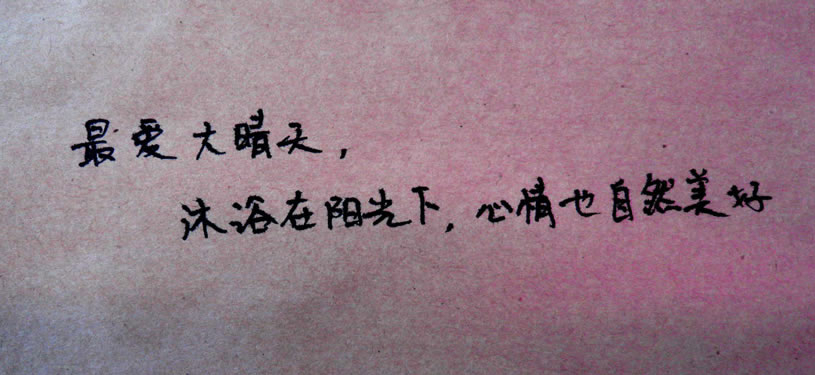 最爱大晴天,
沐浴在阳光下,心情也自然美好